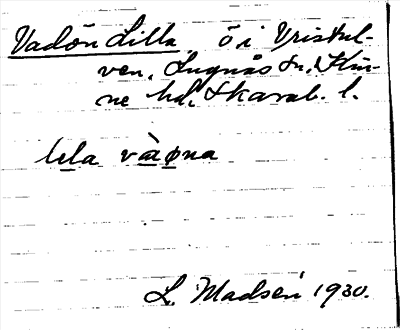 Vadön Lilla, ö i Vristul-
ven, Lugnås sn, Kin-
ne hd, Skarab. l.
lela vàrøna
L. Madsén 1930.